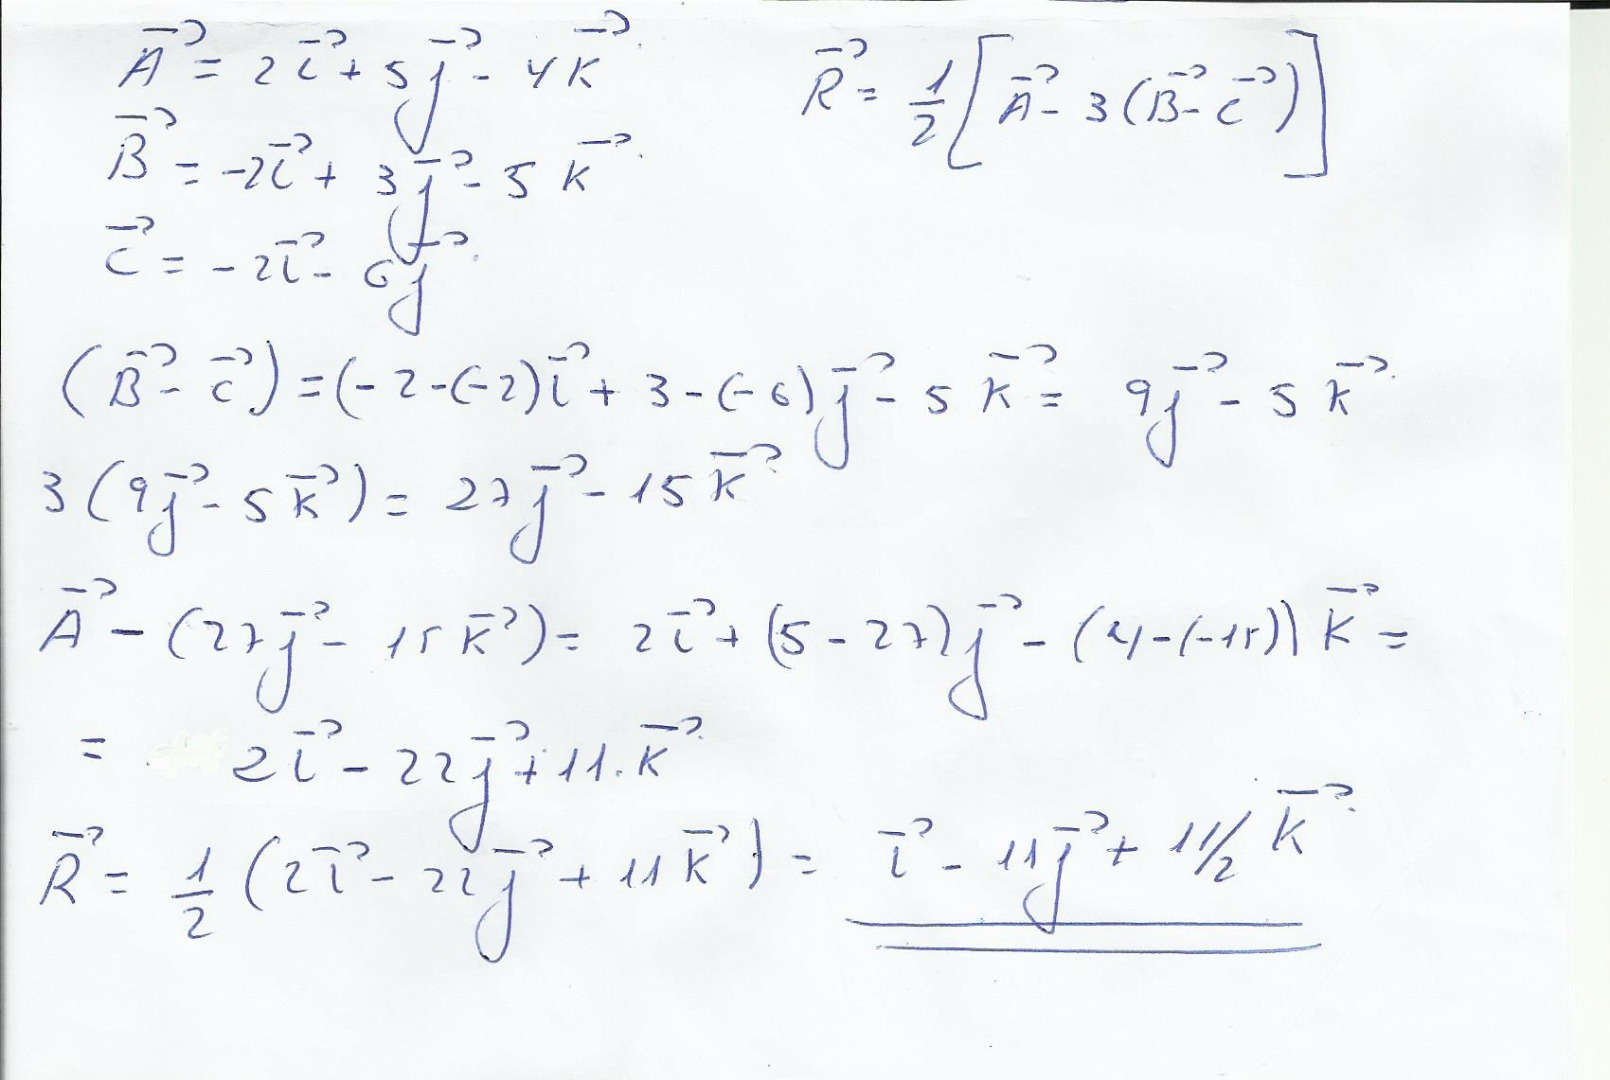 A⃗ = 2i⃗ + 5j⃗ - 4k⃗
R⃗ = 1/2 [A⃗ - 3(B⃗ - C⃗)]
B⃗ = -2i⃗ + 3j⃗ - 5k⃗
C⃗ = -2i⃗ - 6j⃗
(B⃗ - C⃗) = (-2-(-2)i⃗ + 3-(-6)j⃗ - 5k⃗ = 9j⃗ - 5k⃗
3(9j⃗ - 5k⃗) = 27j⃗ - 15k⃗
A⃗ - (27j⃗ - 15k⃗) = 2i⃗ + (5-27)j⃗ - (4-(-15))k⃗ =
= 2i⃗ - 22j⃗ + 11.k⃗
R⃗ = 1/2 (2i⃗ - 22j⃗ + 11k⃗) = i⃗ - 11j⃗ + 11/2 k⃗